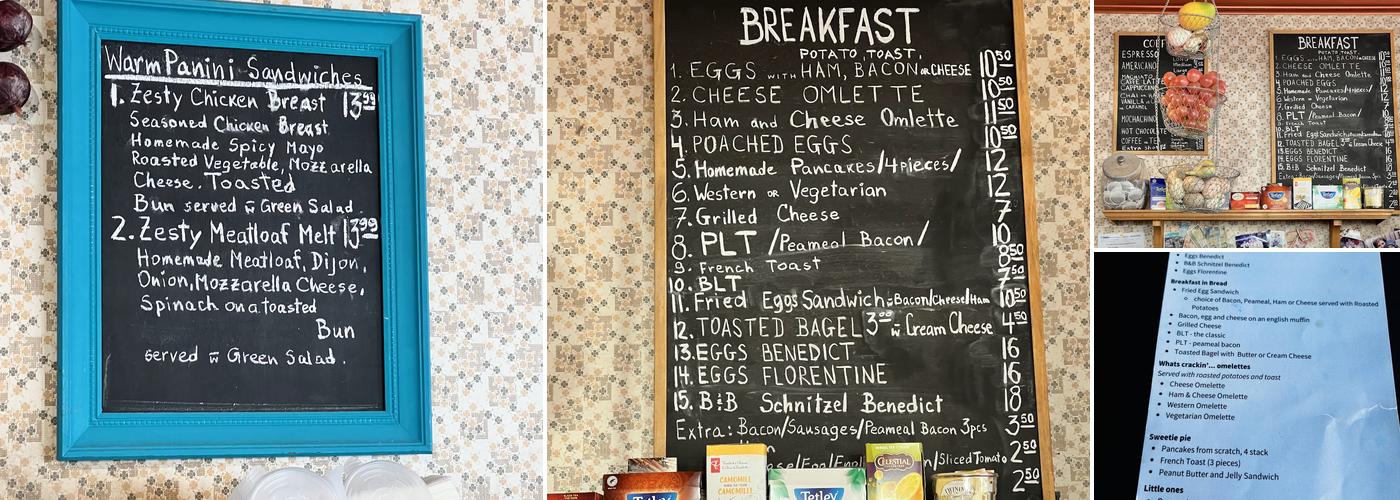 Warm Panini Sandwiches
1. Zesty Chicken Breast 13.99
Seasoned Chicken Breast
Homemade Spicy Mayo
Roasted Vegetable, Mozzarella
Cheese. Toasted
Bun served w Green Salad.
2. Zesty Meatloaf Melt 13.99
Homemade Meatloaf, Dijon,
Onion, Mozzarella Cheese,
Spinach on a toasted
Bun
served w Green Salad.
BREAKFAST
POTATO TOAST.
1. EGGS WITH HAM, BACON OR CHEESE 10.50
2. CHEESE OMLETTE 10.50
3. Ham and Cheese Omlette 11.50
4. POACHED EGGS 10.50
5. Homemade Pancakes/4pieces/ 12
6. Western OR Vegetarian 12
7. Grilled Cheese 7
8. PLT /Peameal Bacon/ 10
9. French Toast 8.50
10. BLT 7.50
11. Fried Eggs Sandwich Bacon/Cheese/Ham 10.50
12. TOASTED BAGEL 3.00 w Cream Cheese 4.50
13. EGGS BENEDICT 16
14. EGGS FLORENTINE 16
15. B&B Schnitzel Benedict 18
Extra: Bacon/Sausages/Peameal Bacon 3pcs 3.50
/Sliced Tomato 2.50
2.50
CAMOMILE
CAMOMILLE
Tetley
Tetley
CELESTIAL
ESPRESSO
AMERICANO
MOCHACHINO
HOT CHOCOLATE
BREAKFAST
POTATO TOAST.
2. CHEESE OMLETTE
3. Ham and Cheese Omlette
4. POACHED EGGS
5. Homemade Pancakes/4pieces/
6. Western OR Vegetarian
7. Grilled Cheese
8. PLT /Peameal Bacon/
9. French Toast
10. BLT
12. TOASTED BAGEL
13. EGGS BENEDICT
14. EGGS FLORENTINE
15. B&B Schnitzel Benedict
• Eggs Benedict
• B&B Schnitzel Benedict
• Eggs Florentine
Breakfast in Bread
• Fried Egg Sandwich
○ choice of Bacon, Peameal, Ham or Cheese served with Roasted
Potatoes
• Bacon, egg and cheese on an english muffin
• Grilled Cheese
• BLT - the classic
• PLT - peameal bacon
• Toasted Bagel with Butter or Cream Cheese
Whats crackin'... omelettes
Served with roasted potatoes and toast
• Cheese Omelette
• Ham & Cheese Omelette
• Western Omelette
• Vegetarian Omelette
Sweetie pie
• Pancakes from scratch, 4 stack
• French Toast (3 pieces)
• Peanut Butter and Jelly Sandwich
Little ones